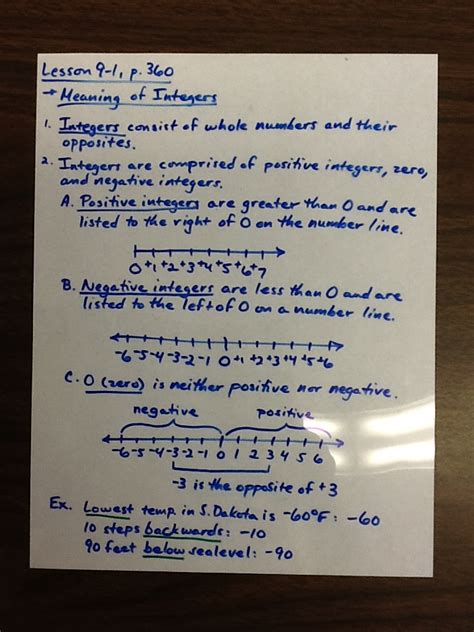 Lesson 9-1, p. 360
→ Meaning of Integers
1. Integers consist of whole numbers and their
opposites.
2. Integers are comprised of positive integers, zero,
and negative integers.
A. Positive integers are greater than 0 and are
listed to the right of 0 on the number line.
0 +1 +2 +3 +4 +5 +6 +7
B. Negative integers are less than 0 and are
listed to the left of 0 on a number line.
-6 -5 -4 -3 -2 -1 0 +1 +2 +3 +4 +5 +6
C. 0 (zero) is neither positive nor negative.
negative positive
-6 -5 -4 -3 -2 -1 0 1 2 3 4 5 6
-3 is the opposite of +3
Ex. Lowest temp. in S. Dakota is -60°F: -60
10 steps backwards: -10
90 feet below sealevel: -90